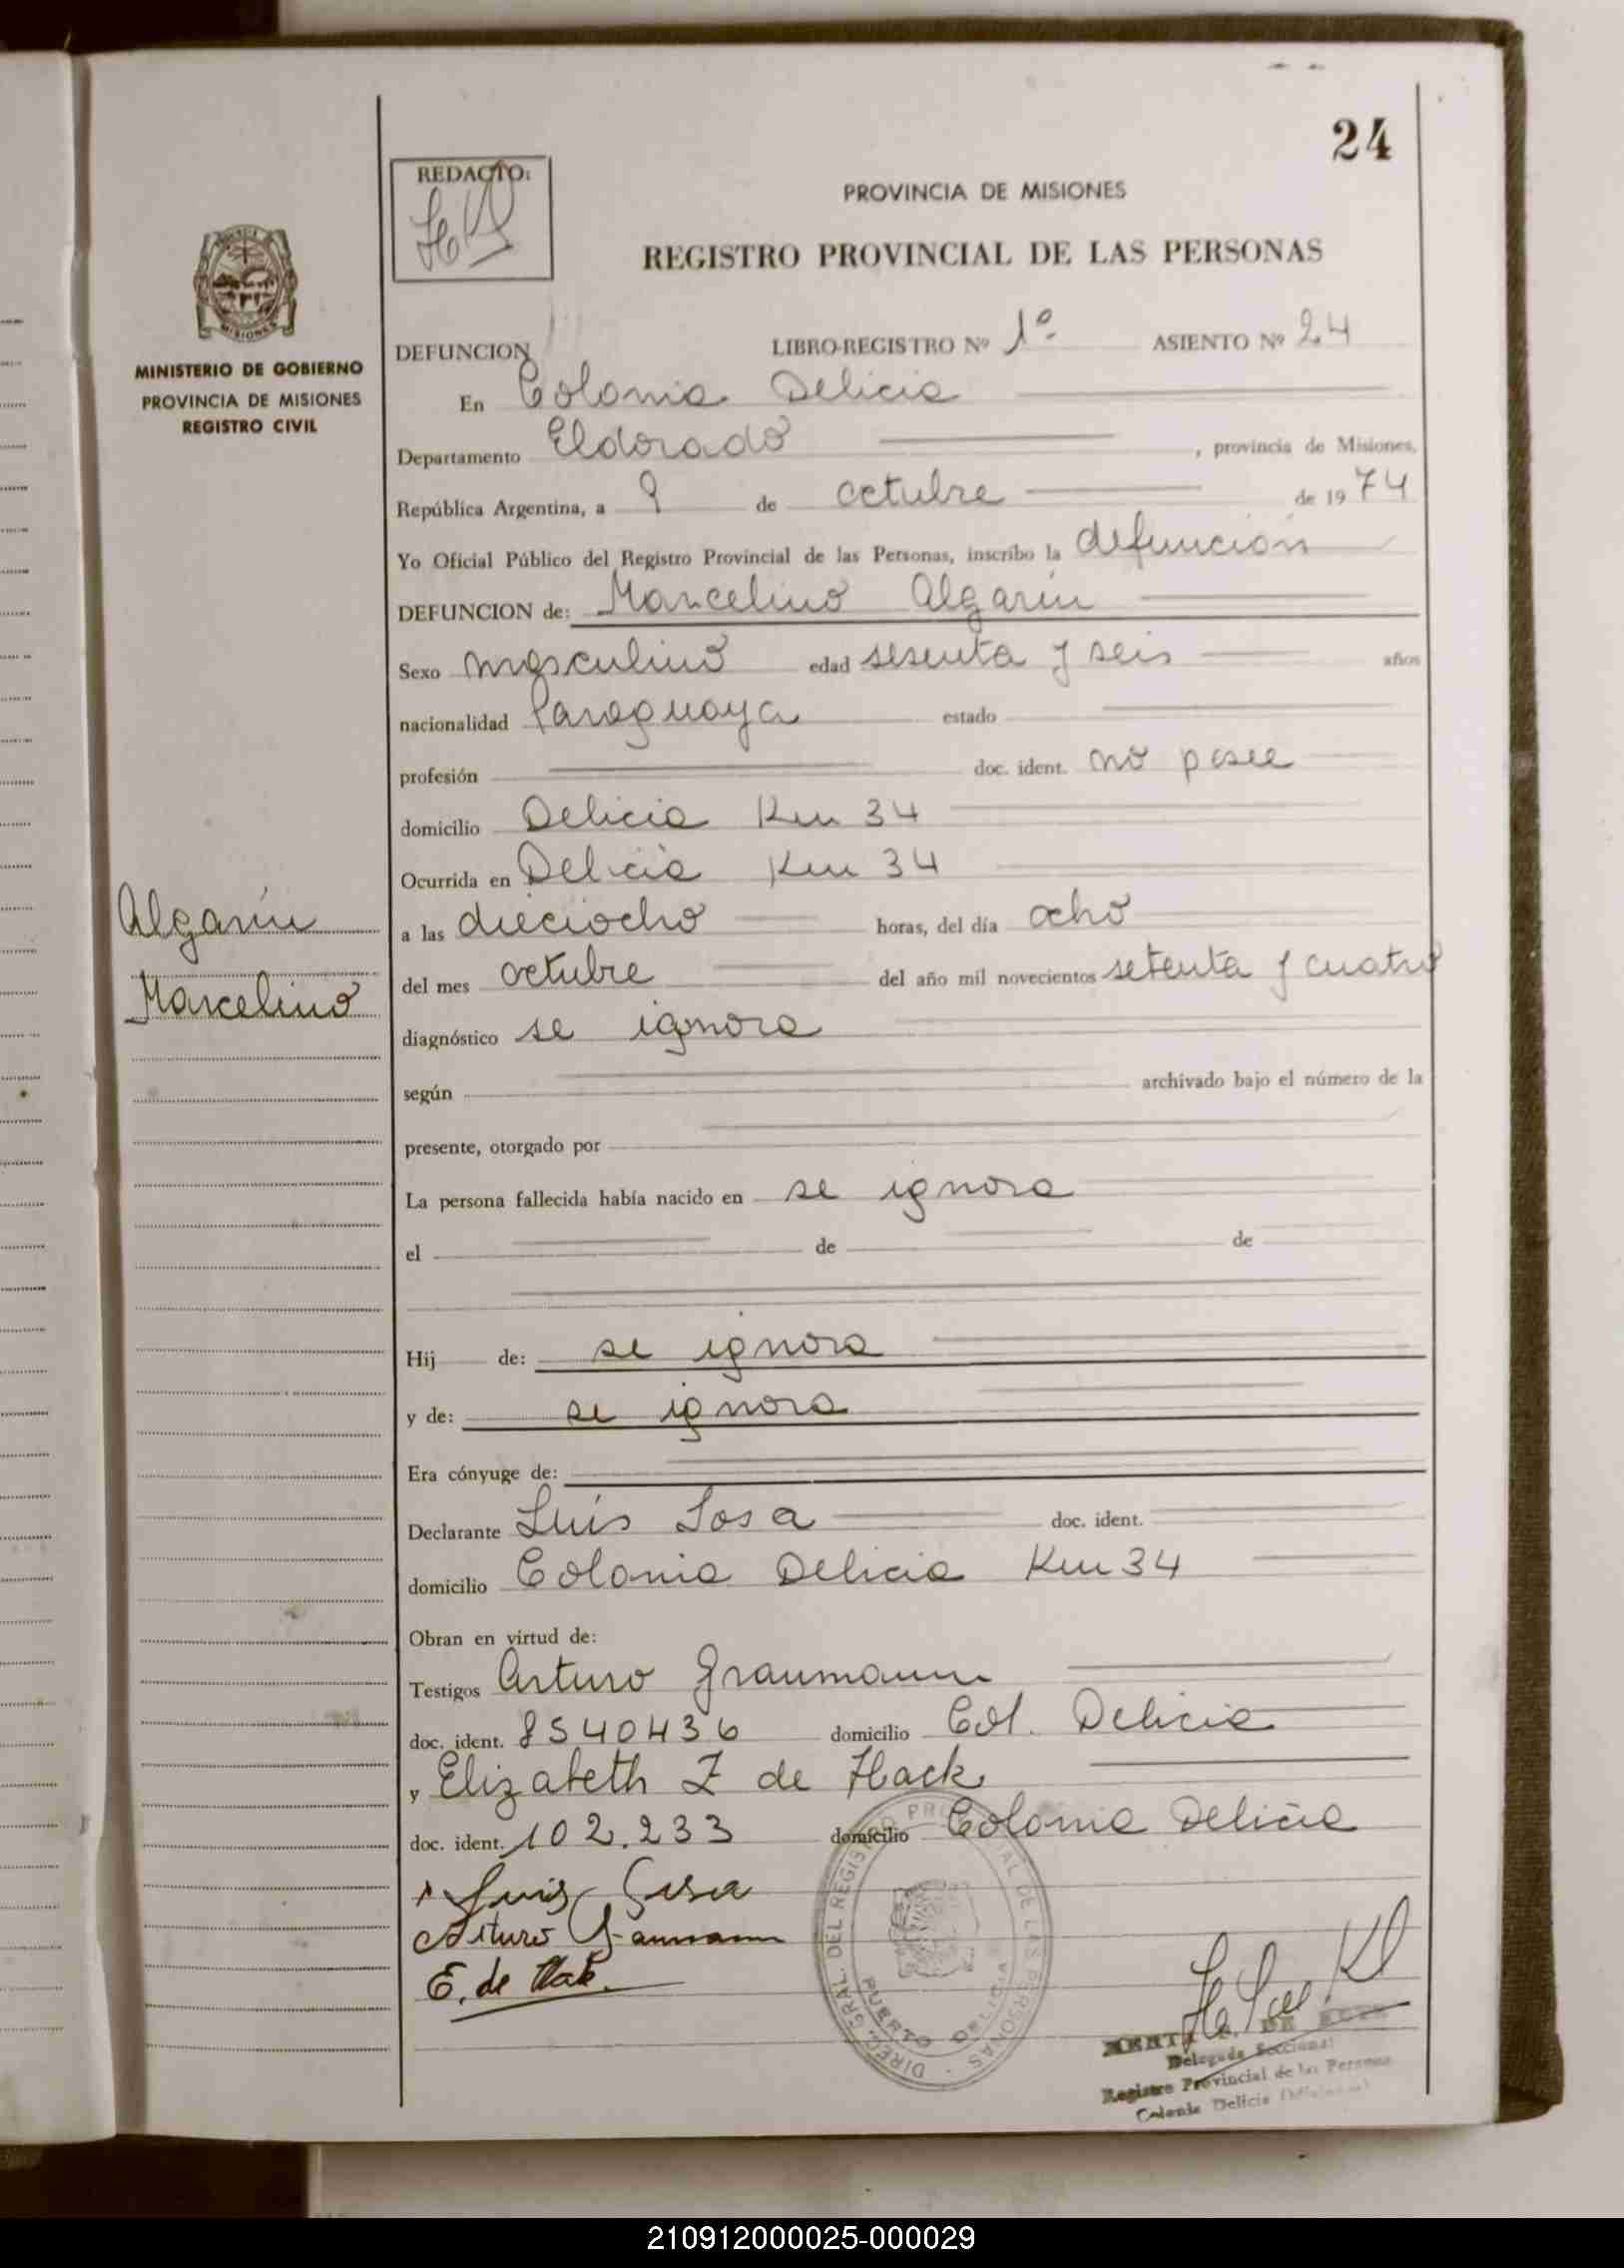 24
REDACTO:
PROVINCIA DE MISIONES
REGISTRO PROVINCIAL DE LAS PERSONAS
MINISTERIO DE GOBIERNO
PROVINCIA DE MISIONES
REGISTRO CIVIL
DEFUNCION LIBRO-REGISTRO Nº 1º ASIENTO Nº 24
En Colonia Delicia
Departamento Eldorado, provincia de Misiones,
República Argentina, a 9 de octubre de 1974
Yo Oficial Público del Registro Provincial de las Personas, inscribo la defunción
DEFUNCION de: Marcelino Algarín
Sexo masculino edad sesenta y seis años
nacionalidad Paraguaya estado
profesión doc. ident. no posee
domicilio Delicia Km 34
Ocurrida en Delicia Km 34
Algarín
a las dieciocho horas, del día ocho
Marcelino
del mes octubre del año mil novecientos setenta y cuatro
diagnóstico se ignora
según archivado bajo el número de la
presente, otorgado por
La persona fallecida había nacido en se ignora
el de de
Hij de: se ignora
y de: se ignora
Era cónyuge de:
Declarante Luís Sosa doc. ident.
domicilio Colonia Delicia Km 34
Obran en virtud de:
Testigos Arturo Graumann
doc. ident. 8540436 domicilio Col. Delicia
y Elizabeth Z de Hack
doc. ident. 102.233 domicilio Colonia Delicia
Luis Sosa
Arturo Graumann
E. de Hack.
DIREC. GRAL. DEL REGISTRO PROVINCIAL DE LAS PERSONAS
PUERTO DELICIA
DE
Delegada Seccional
Registro Provincial de las Personas
Colonia Delicia (Misiones)
210912000025-000029